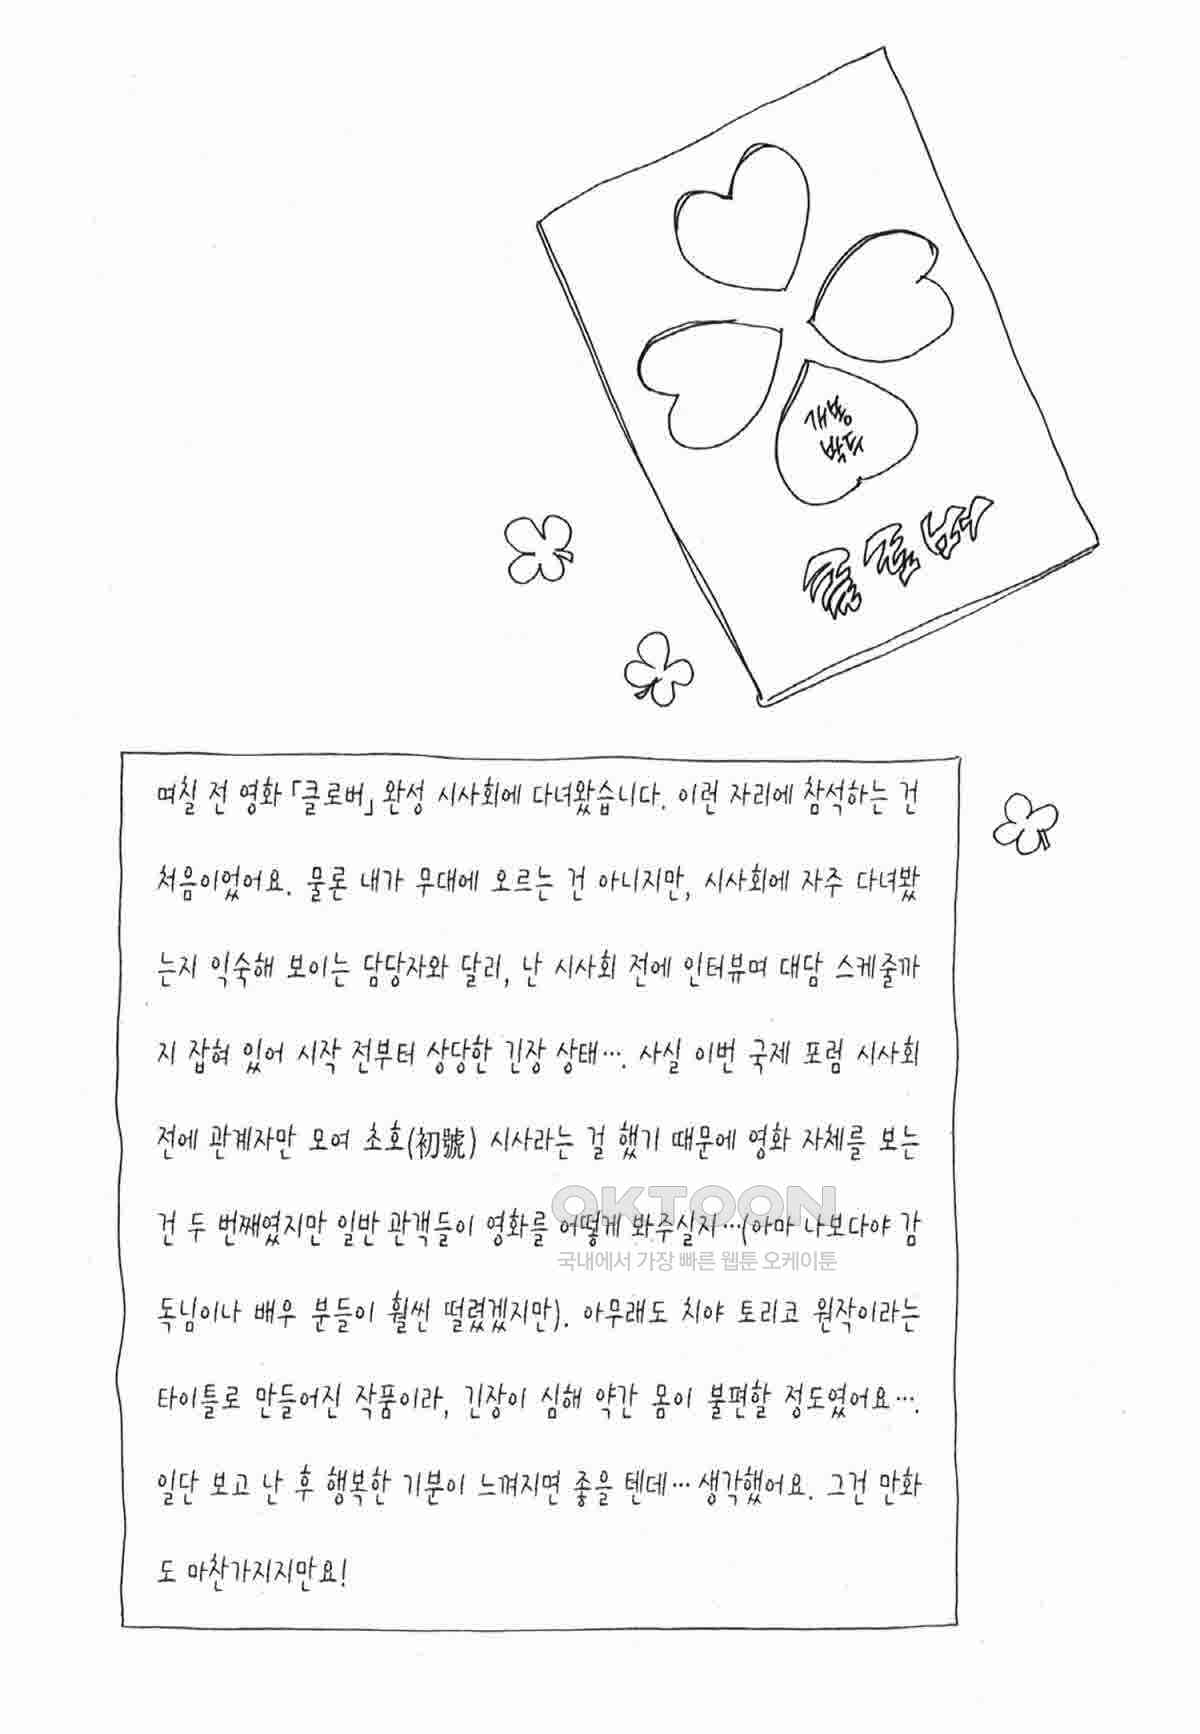 개봉
박두
클로버
며칠 전 영화 「클로버」 완성 시사회에 다녀왔습니다. 이런 자리에 참석하는 건
처음이었어요. 물론 내가 무대에 오르는 건 아니지만, 시사회에 자주 다녀봤
는지 익숙해 보이는 담당자와 달리, 난 시사회 전에 인터뷰며 대담 스케줄까
지 잡혀 있어 시작 전부터 상당한 긴장 상태…. 사실 이번 국제 포럼 시사회
전에 관계자만 모여 초호(初號) 시사라는 걸 했기 때문에 영화 자체를 보는
건 두 번째였지만 일반 관객들이 영화를 어떻게 봐주실지…(아마 나보다야 감
독님이나 배우 분들이 훨씬 떨렸겠지만). 아무래도 치야 토리코 원작이라는
타이틀로 만들어진 작품이라, 긴장이 심해 약간 몸이 불편할 정도였어요….
일단 보고 난 후 행복한 기분이 느껴지면 좋을 텐데…생각했어요. 그건 만화
도 마찬가지지만요!
OKTOON
국내에서 가장 빠른 웹툰 오케이툰